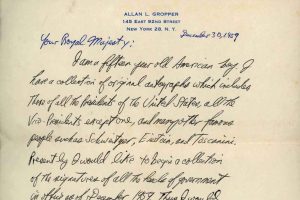 ALLAN L. GROPPER
145 EAST 92ND STREET
NEW YORK 28, N. Y.
December 30, 1959
Your Royal Majesty:
I am a fifteen year old American boy. I
have a collection of original autographs which includes
those of all the Presidents of the United States, all the
Vice-Presidents except one, and many of the famous
people such as Schweitzer, Einstein, and Toscanini.
Presently I would like to begin a collection
of the signatures of all the heads of government
in office as of December 1959. Thus